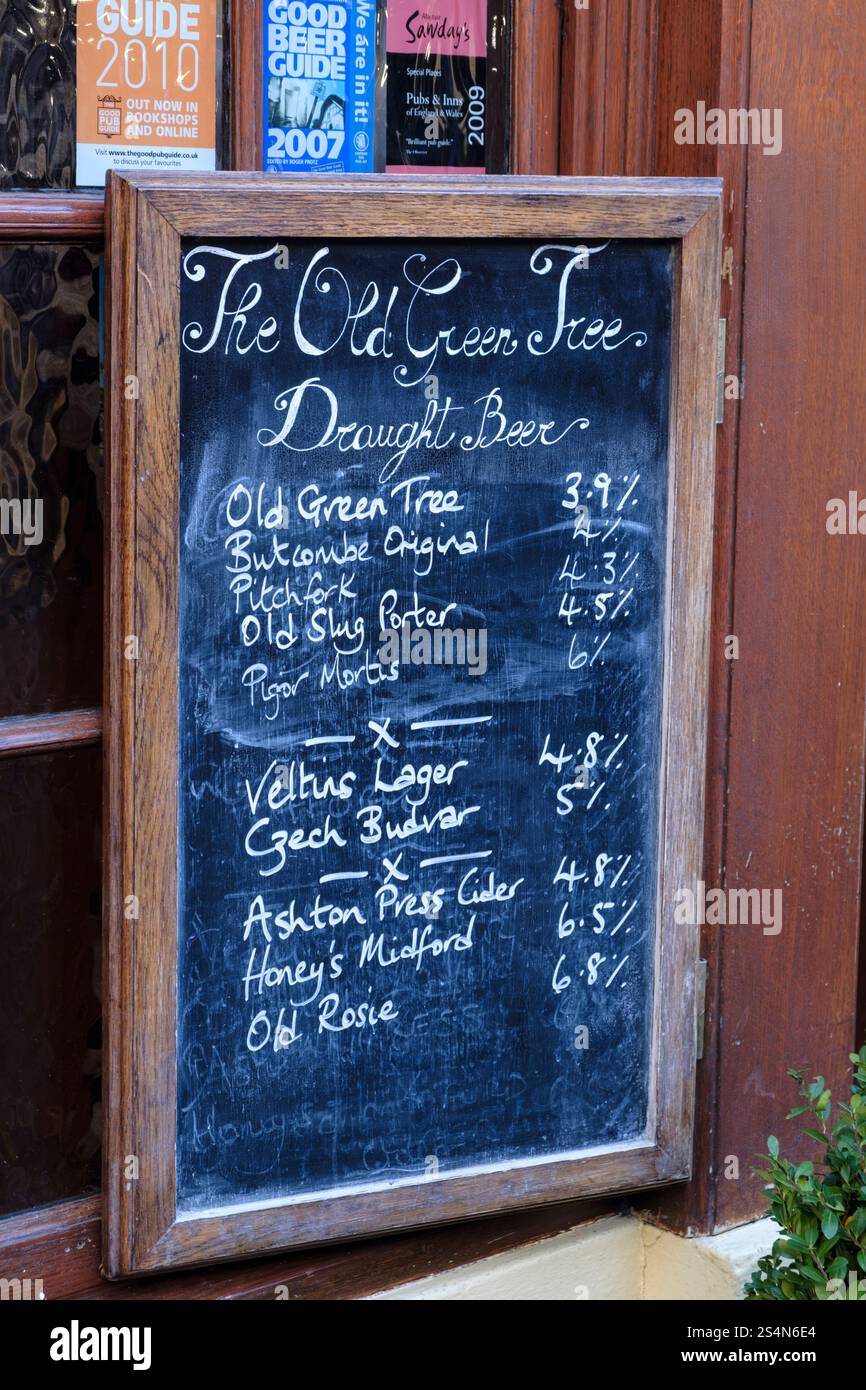 GUIDE
2010
OUT NOW IN
BOOKSHOPS
AND ONLINE
GOOD
PUB
GUIDE
Visit www.thegoodpubguide.co.uk
to discuss your favourites
GOOD
BEER
GUIDE
2007
EDITED BY ROGER PROTZ
We are in it!
Alastair
Sawday's
Special Places
Pubs & Inns
of England & Wales
2009
"Brilliant pub guide."
The Observer
The Old Green Tree
Draught Beer
Old Green Tree 3.9%
Butcombe Original 4%
Pitchfork 4.3%
Old Slug Porter 4.5%
Pigor Mortis 6%
— X —
Veltins Lager 4.8%
Czech Budvar 5%
— X —
Ashton Press Cider 4.8%
Honey's Midford 6.5%
Old Rosie 6.8%
alamy
alamy
Image ID: 2S4N6E4
www.alamy.com